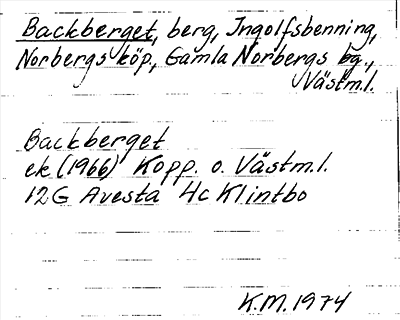 Backberget, berg, Ingolfsbenning,
Norbergs köp., Gamla Norbergs bg.,
Västm.l.
Backberget
ek. (1966) Kopp. o. Västm.l.
12G Avesta 4c Klintbo
K.M. 1974